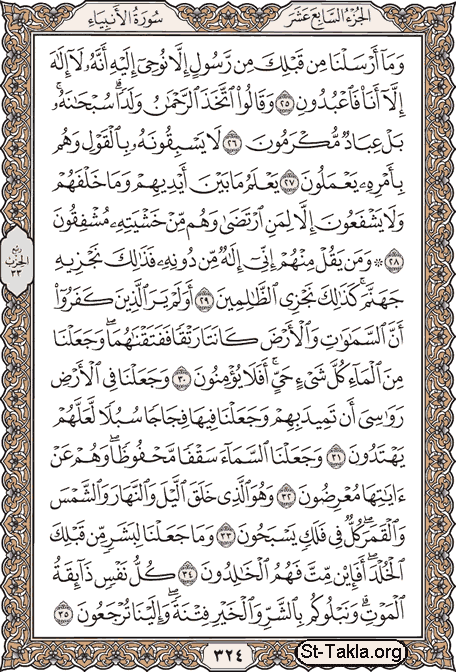 الجزء السابع عشر
سورة الأنبياء
وَمَآ أَرْسَلْنَا مِن قَبْلِكَ مِن رَّسُولٍ إِلَّا نُوحِىٓ إِلَيْهِ أَنَّهُۥ لَآ إِلَٰهَ
إِلَّآ أَنَا۠ فَٱعْبُدُونِ ٢٥ وَقَالُوا۟ ٱتَّخَذَ ٱلرَّحْمَٰنُ وَلَدًا ۗ سُبْحَٰنَهُۥ ۚ
بَلْ عِبَادٌ مُّكْرَمُونَ ٢٦ لَا يَسْبِقُونَهُۥ بِٱلْقَوْلِ وَهُم
بِأَمْرِهِۦ يَعْمَلُونَ ٢٧ يَعْلَمُ مَا بَيْنَ أَيْدِيهِمْ وَمَا خَلْفَهُمْ
وَلَا يَشْفَعُونَ إِلَّا لِمَنِ ٱرْتَضَىٰ وَهُم مِّنْ خَشْيَتِهِۦ مُشْفِقُونَ
٢٨ ۞ وَمَن يَقُلْ مِنْهُمْ إِنِّىٓ إِلَٰهٌ مِّن دُونِهِۦ فَذَٰلِكَ نَجْزِيهِ
جَهَنَّمَ ۚ كَذَٰلِكَ نَجْزِى ٱلظَّٰلِمِينَ ٢٩ أَوَلَمْ يَرَ ٱلَّذِينَ كَفَرُوٓا۟
أَنَّ ٱلسَّمَٰوَٰتِ وَٱلْأَرْضَ كَانَتَا رَتْقًا فَفَتَقْنَٰهُمَا ۖ وَجَعَلْنَا
مِنَ ٱلْمَآءِ كُلَّ شَىْءٍ حَىٍّ ۖ أَفَلَا يُؤْمِنُونَ ٣٠ وَجَعَلْنَا فِى ٱلْأَرْضِ
رَوَٰسِىَ أَن تَمِيدَ بِهِمْ وَجَعَلْنَا فِيهَا فِجَاجًا سُبُلًا لَّعَلَّهُمْ
يَهْتَدُونَ ٣١ وَجَعَلْنَا ٱلسَّمَآءَ سَقْفًا مَّحْفُوظًا ۖ وَهُمْ عَنْ
ءَايَٰتِهَا مُعْرِضُونَ ٣٢ وَهُوَ ٱلَّذِى خَلَقَ ٱلَّيْلَ وَٱلنَّهَارَ وَٱلشَّمْسَ
وَٱلْقَمَرَ ۖ كُلٌّ فِى فَلَكٍ يَسْبَحُونَ ٣٣ وَمَا جَعَلْنَا لِبَشَرٍ مِّن قَبْلِكَ
ٱلْخُلْدَ ۖ أَفَإِي۟ن مِّتَّ فَهُمُ ٱلْخَٰلِدُونَ ٣٤ كُلُّ نَفْسٍ ذَآئِقَةُ
ٱلْمَوْتِ ۗ وَنَبْلُوكُم بِٱلشَّرِّ وَٱلْخَيْرِ فِتْنَةً ۖ وَإِلَيْنَا تُرْجَعُونَ ٣٥
ربع
الحزب
٣٣
٣٢٤
St-Takla.org